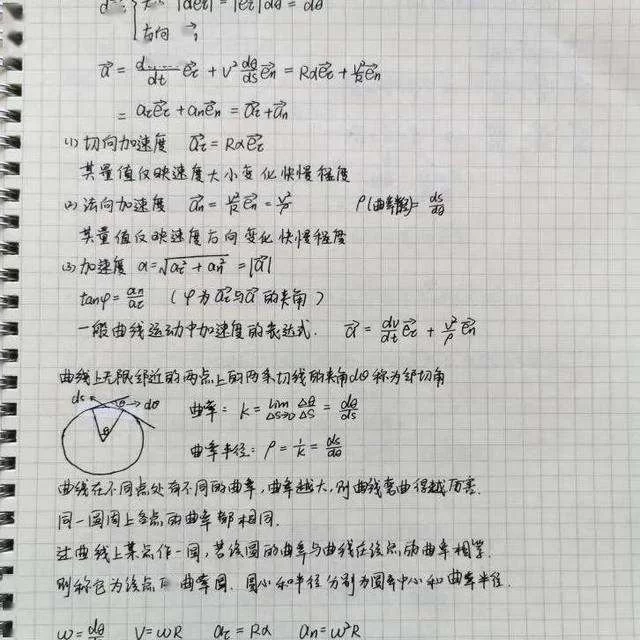 |de⃗t| = |e⃗t|dθ = dθ
方向
a⃗ = d/dt e⃗t + v² dθ/ds e⃗n = Rαe⃗t + v²/R e⃗n
= ate⃗t + ane⃗n = a⃗t + a⃗n
(1) 切向加速度 a⃗t = Rαe⃗t
其量值反映速度大小变化快慢程度
(2) 法向加速度 a⃗n = v²/R e⃗n = v²/ρ ρ(曲率半径) = ds/dθ
其量值反映速度方向变化快慢程度
(3) 加速度 a = √(at² + an²) = |a⃗|
tanφ = an/at (φ为a⃗t与a⃗的夹角)
一般曲线运动中加速度的表达式. a⃗ = dv/dt e⃗t + v²/ρ e⃗n
曲线上无限邻近的两点上的两条切线的夹角dθ称为邻切角
ds dθ
θ
曲率: K = lim ΔS→0 Δθ/ΔS = dθ/ds
曲率半径: ρ = 1/K = ds/dθ
曲线在不同点处有不同的曲率,曲率越大,则曲线弯曲得越厉害.
同一圆周上各点的曲率都相同.
过曲线上某点作一圆,若该圆的曲率与曲线在该点的曲率相等.
则称它为该点 曲率圆. 圆心和半径分别为圆率中心和曲率半径.
ω = dθ V = ωR at = Rα an = ω²R